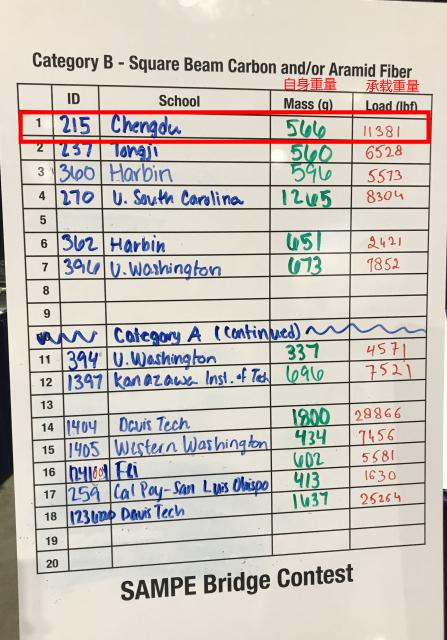 Category B - Square Beam Carbon and/or Aramid Fiber
自身重量 承载重量
ID School Mass (g) Load (lbf)
1 215 Chengdu 566 11381
2 237 Tongji 560 6528
3 360 Harbin 596 5573
4 270 U. South Carolina 1265 8304
5
6 362 Harbin 651 2421
7 396 U. Washington 673 7852
8
9
Category A (Continued)
11 394 U. Washington 337 4571
12 1397 Kanazawa Inst. of Tech 696 7521
13
14 1404 Davis Tech 1800 28866
15 1405 Western Washington 434 7456
16 602 5581
17 259 Cal Poy-San Luis Obispo 413 1630
18 Davis Tech 1637 25264
19
20
SAMPE Bridge Contest